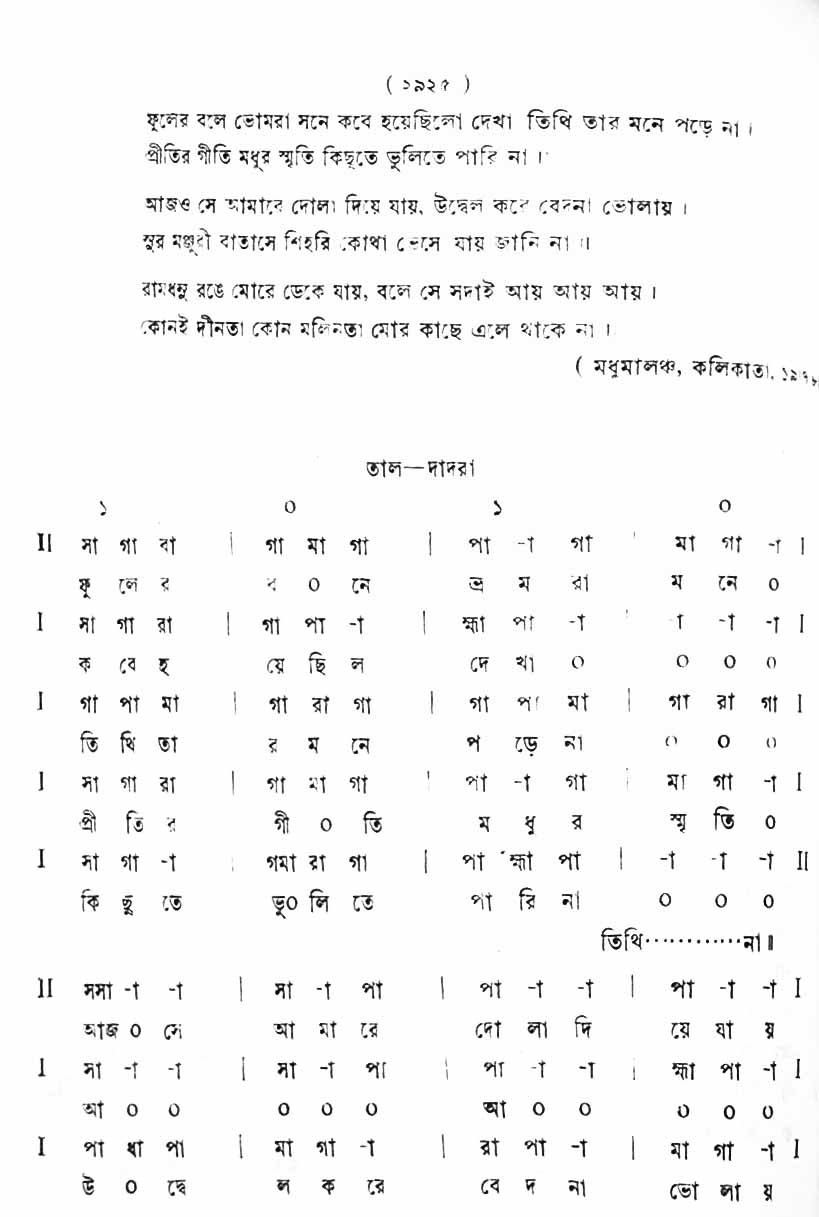 ( ১৯২৫ )
ফুলের বলে ভোমরা সনে কবে হয়েছিলো দেখা তিথি তার মনে পড়ে না ।
প্রীতির গীতি মধুর স্মৃতি কিছুতে ভুলিতে পারি না ।
আজও সে আমারে দোলা দিয়ে যায়, উদ্বেল করে বেদনা ভোলায় ।
সুর মঞ্জুরী বাতাসে শিহরি কোথা ভেসে যায় জানি না ।
রামধনু রঙে মোরে ডেকে যায়, বলে সে সদাই আয় আয় আয় ।
কোনই দীনতা কোন মলিনতা মোর কাছে এলে থাকে না ।
( মধুমালঞ্চ, কলিকাতা,
তাল—দাদরা
১ ০ ১ ০
II সা গা রা | গা মা গা | পা -া গা | মা গা -া I
ফু লে র ব ০ নে ভ্র ম রা ম নে ০
I সা গা রা | গা পা -া | হ্মা পা -া | -া -া -া I
ক বে হ য়ে ছি ল দে খা ০ ০ ০ ০
I গা পা মা | গা রা গা | গা পা মা | গা রা গা I
তি থি তা র ম নে প ড়ে না ০ ০ ০
I সা গা রা | গা মা গা | পা -া গা | মা গা -া I
প্রী তি র গী ০ তি ম ধু র স্মৃ তি ০
I সা গা -া | গমা রা গা | পা হ্মা পা | -া -া -া II
কি ছু তে ভু০ লি তে পা রি না ০ ০ ০
তিথি············না॥
II সসা -া -া | সা -া পা | পা -া -া | পা -া -া I
আজ ০ সে আ মা রে দো লা দি য়ে যা য়
I সা -া -া | সা -া পা | পা -া -া | হ্মা পা -া I
আ ০ ০ ০ ০ ০ আ ০ ০ ০ ০ ০
I পা ধা পা | মা গা -া | রা পা -া | মা গা -া I
উ ০ দ্বে ল ক রে বে দ না ভো লা য়